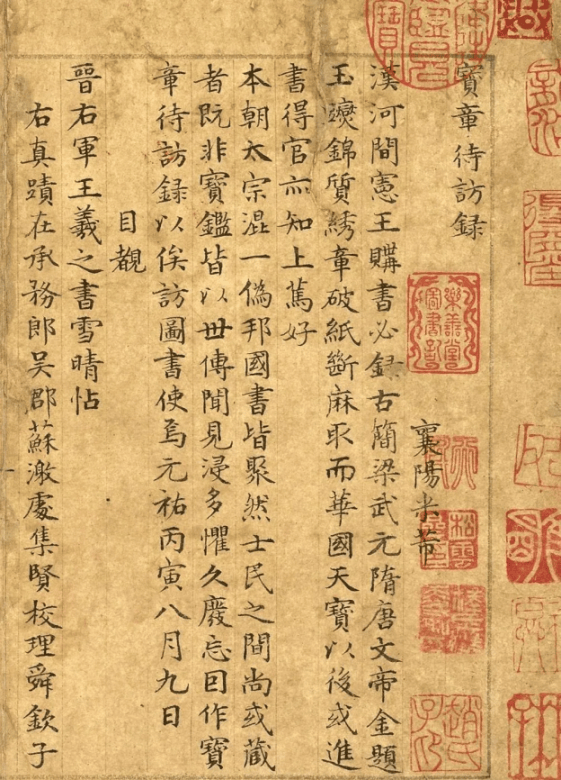 寶章待訪録
襄陽米芾
漢河間憲王購書必録古簡梁武元隋唐文帝金題
玉躞錦質綉章破紙斷麻取而華國天寶以後或進
書得官亦知上篤好
本朝太宗混一偽邦國書皆聚然士民之間尚或藏
者既非寶鑑皆以世傳聞見浸多懼久廢忘曰作寶
章待訪録以俟訪圖書使焉元祐丙寅八月九日
目覩
晉右軍王羲之書雪晴帖
右真蹟在承務郎吴郡蘇澂處集賢校理舜欽子